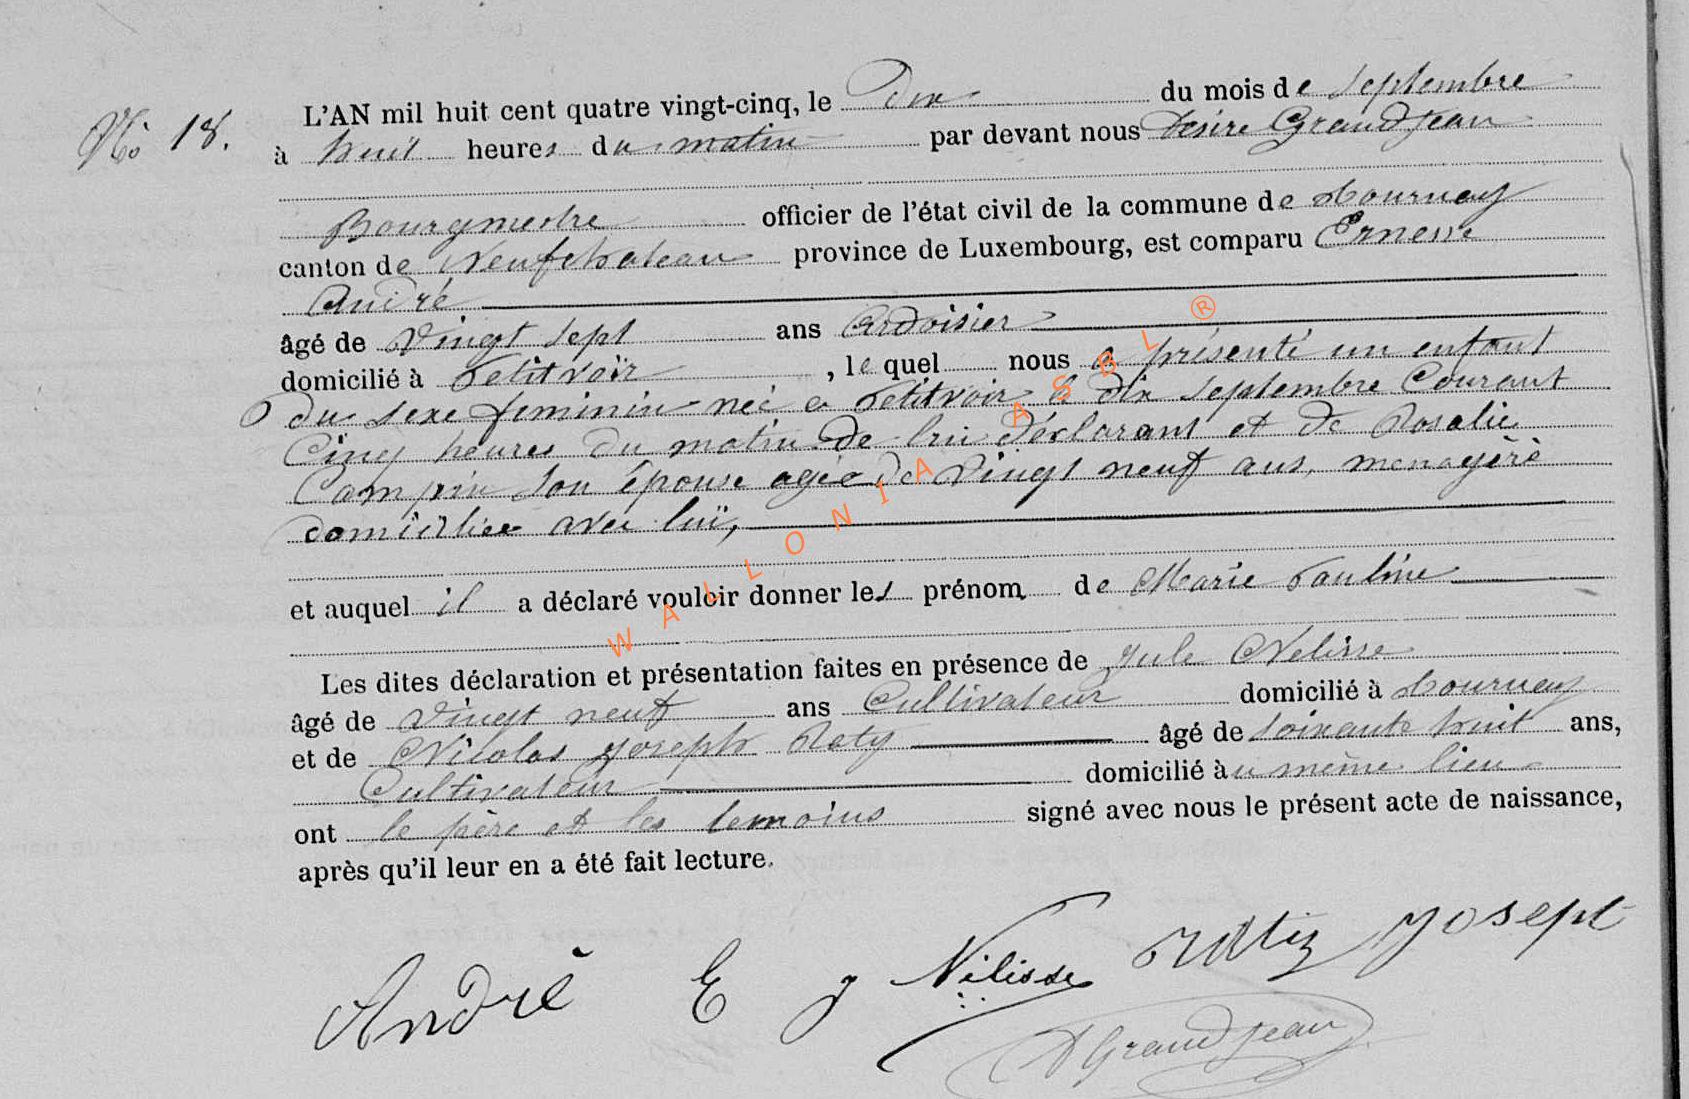 No 18.
L'AN mil huit cent quatre vingt-cinq, le dix du mois de septembre
à huit heures du matin par devant nous Désiré Grandjean
Bourgmestre officier de l'état civil de la commune de Tournay
canton de Neufchateau province de Luxembourg, est comparu Ernest
André
âgé de vingt sept ans Ardoisier
domicilié à Petitvoir, lequel nous a présenté un enfant
du sexe feminin née a Petitvoir le dix septembre Courant
Cinq heures du matin de lui déclarant et de Rosalie
son épouse agée de vingt neuf ans, menagère
domiciliee avec lui,
et auquel il a déclaré vouloir donner les prénom de Marie Pauline
Les dites déclaration et présentation faites en présence de Jule Nelisse
âgé de vingt neuf ans Cultivateur domicilié à Tournay
et de Nicolas Joseph Roty âgé de soixante huit ans,
Cultivateur domicilié au même lieu
ont le père et les temoins signé avec nous le présent acte de naissance,
après qu'il leur en a été fait lecture.
André E J Nilisse Josept
DGrandjean
WALLONIA ASBL ®